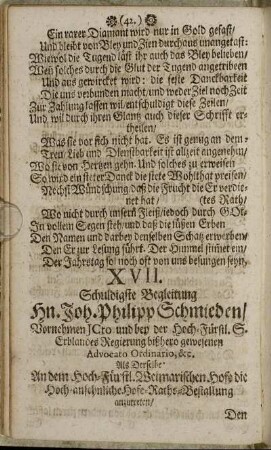 (42.)
Ein rarer Diamant wird nur in Gold gefast/
Und bleibt von Bley und Zien durchaus unangetast:
Wiewol die Tugend läst ihr auch das Bley belieben/
Weil solches durch die Glut der Tugend angetrieben
Und aus gewircket wird: die feste Danckbarkeit
Die uns verbunden macht/ und weder Ziel noch Zeit
Zur Zahlung lassen wil/ entschuldigt diese Zeilen/
Und wil durch ihren Glantz auch dieser Schrifft ertheilen/
Was sie vor sich nicht hat. Es ist genug an dem-
Treu/ Lieb und Dienstbarkeit ist allzeit angenehm/
Wo sie von Hertzen gehn. Und solches zu erweisen
So wird ein steter Danck die stete Wohlthat preisen/
Nechst Wündschung/ daß die Frucht die Er verdienet hat/
(tes Rath/
Wo nicht durch unsern Fleiß/ iedoch durch GOt-
In vollem Segen steh/ und daß die süßen Erben
Den Namen und darbey denselben Schatz erwerben/
Den Er zur Lesung führt. Der Himmel stimmet ein/
Der Jahrstag sol noch oft von uns besungen seyn.
XVII.
Schuldigste Begleitung
Hn. Joh. Philipp Schmieden/
Vornehmen JCto und bey der Hoch-Fürstl. S.
Erblandes Regierung bißhero gewesenen
Advocato Ordinario, &c.
Als Derselbe
An dem Hoch-Fürstl. Weimarischen Hofe die
Hoch-ansehnliche Hofe-Raths-Bestallung
antreten/
Den